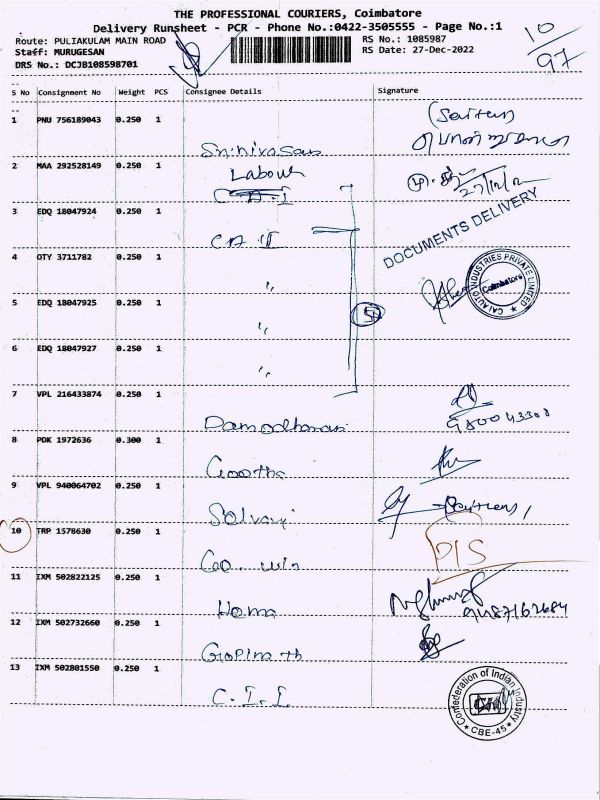 THE PROFESSIONAL COURIERS, Coimbatore
Delivery Runsheet - PCR - Phone No.:0422-3505555 - Page No.:1
Route: PULIAKULAM MAIN ROAD
RS No.: 1085987
Staff: MURUGESAN
RS Date: 27-Dec-2022
DRS No.: DCJB108598701
10
97
S No Consignment No Weight PCS Consignee Details Signature
1 PNU 756189043 0.250 1
Srinivasan
2 MAA 292528149 0.250 1
Labour
27/12/2
3 EDQ 18047924 0.250 1
CAI
DOCUMENTS DELIVERY
4 OTY 3711782 0.250 1
"
CAI AUTO INDUSTRIES PRIVATE LIMITED
Coimbatore
5 EDQ 18047925 0.250 1
"
5
6 EDQ 18047927 0.250 1
"
7 VPL 216433874 0.250 1
Damodharan
8 PDK 1972636 0.300 1
Geetha
9 VPL 940064702 0.250 1
Selvaraj
10 TRP 1578630 0.250 1
DIS
11 IXM 502822125 0.250 1
Hema
9487162684
12 IXM 502732660 0.250 1
Gopinath
13 IXM 502801550 0.250 1
C.I.I
Confederation of Indian Industry
CBE-45